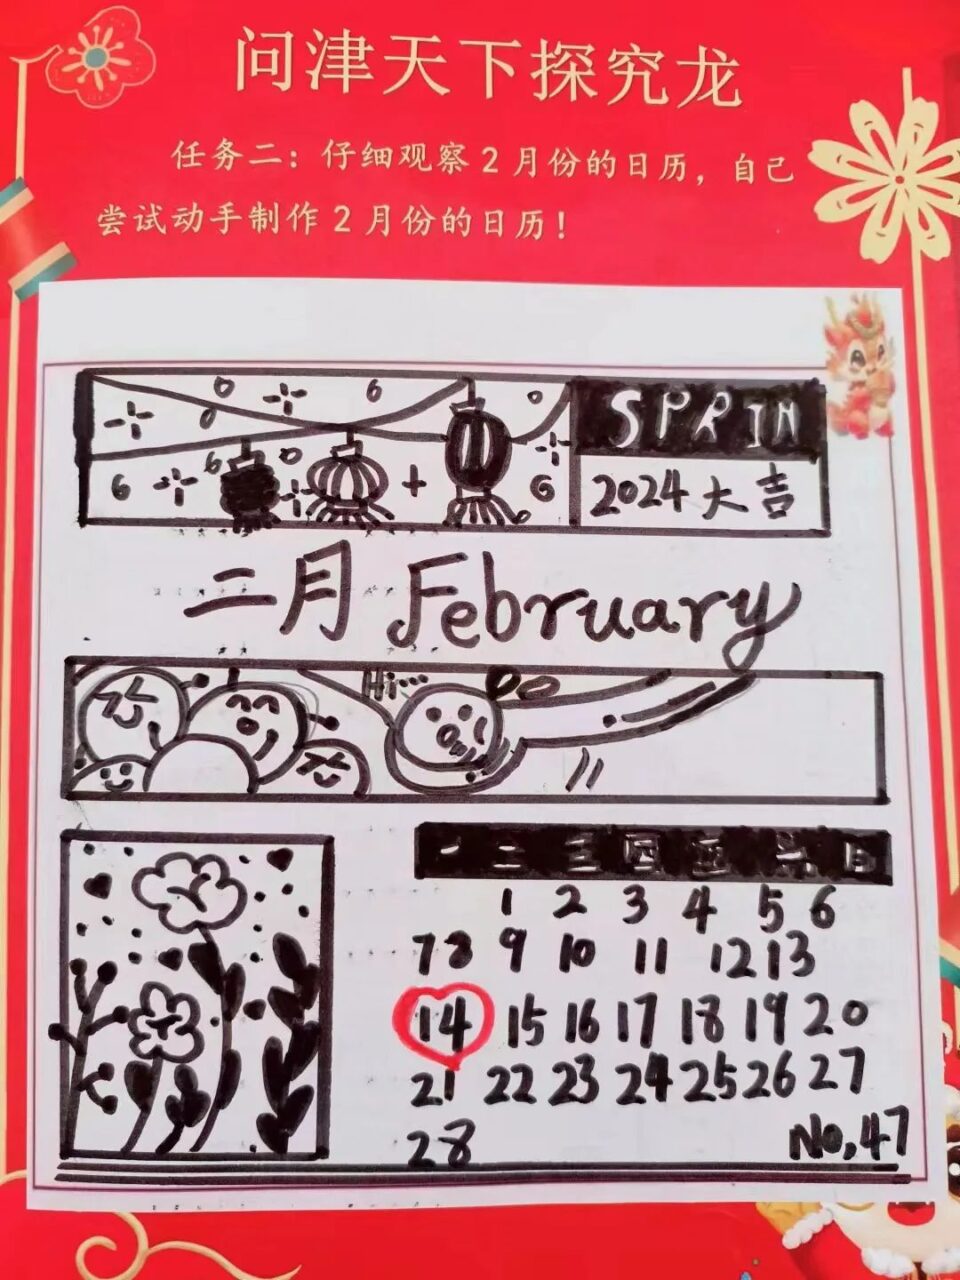 问津天下探究龙
任务二：仔细观察2月份的日历，自己
尝试动手制作2月份的日历！
SPRIN
2024大吉
二月 February
Hi...
一 二 三 四 五 六 日
1 2 3 4 5 6
7 8 9 10 11 12 13
14 15 16 17 18 19 20
21 22 23 24 25 26 27
28
No,47